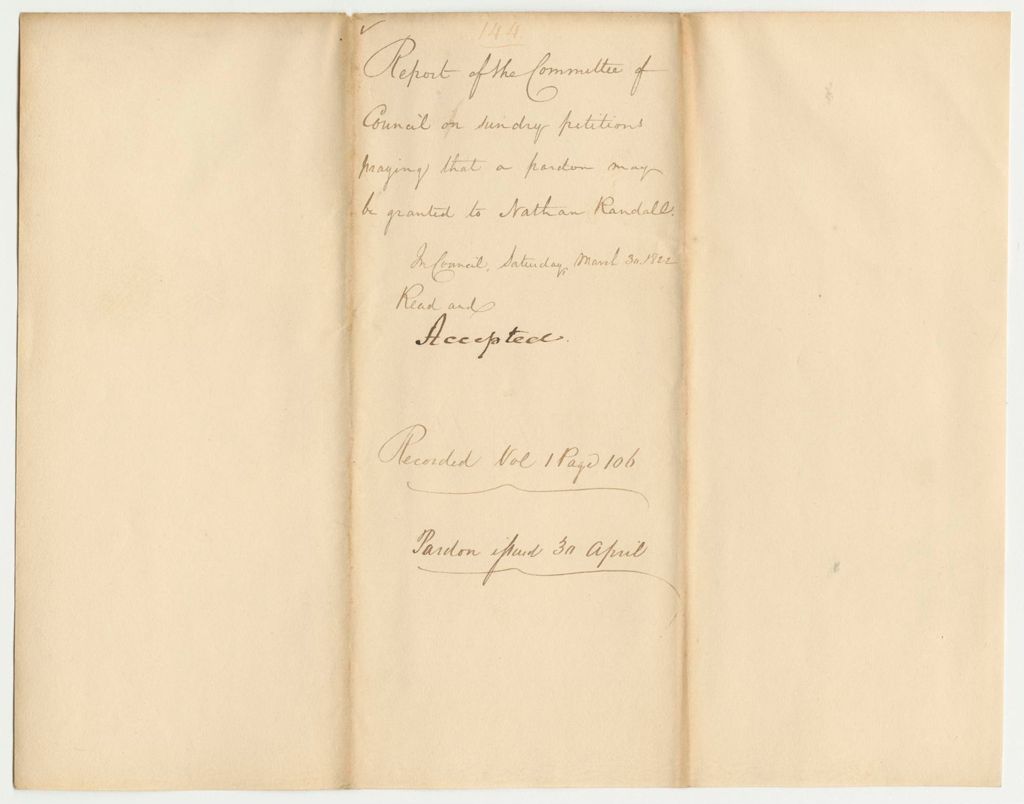 144
Report of the Committee of
Council on sundry petitions
praying that a pardon may
be granted to Nathan Randall.
In Council, Saturday, March 30. 1822
Read and
Accepted.
Recorded Vol 1 Page 106
Pardon issued 30 April